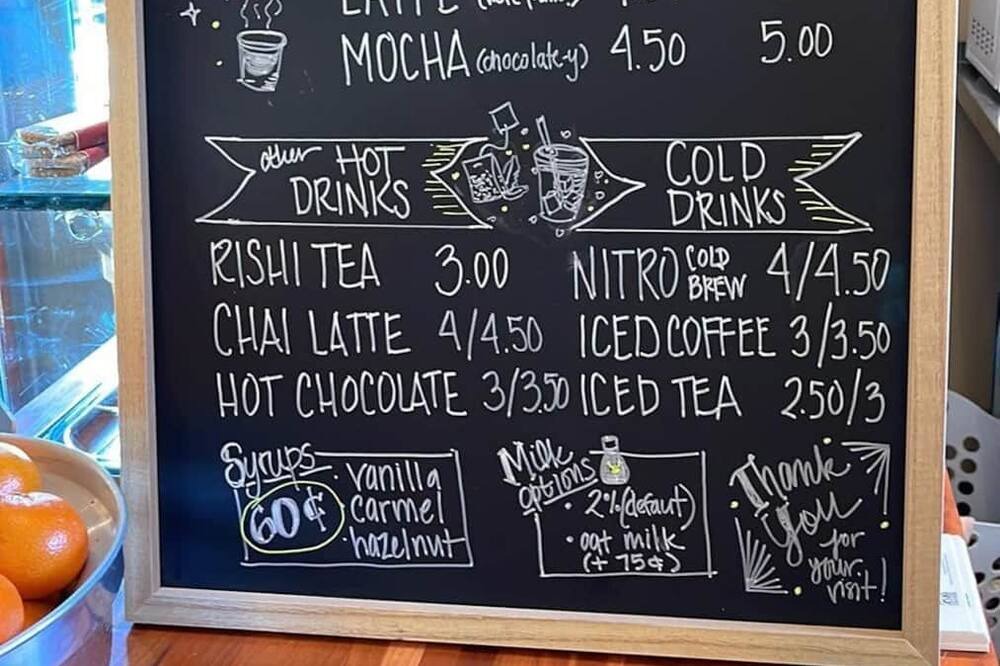 LATTE
MOCHA (chocolate-y) 4.50 5.00
other HOT DRINKS
RISHI TEA 3.00
CHAI LATTE 4/4.50
HOT CHOCOLATE 3/3.50
COLD DRINKS
NITRO COLD BREW 4/4.50
ICED COFFEE 3/3.50
ICED TEA 2.50/3
Syrups
60¢
• vanilla
carmel
• hazelnut
Milk
options
• 2% (defaut)
• oat milk
(+ 75¢)
Thank
You
for
your
visit!